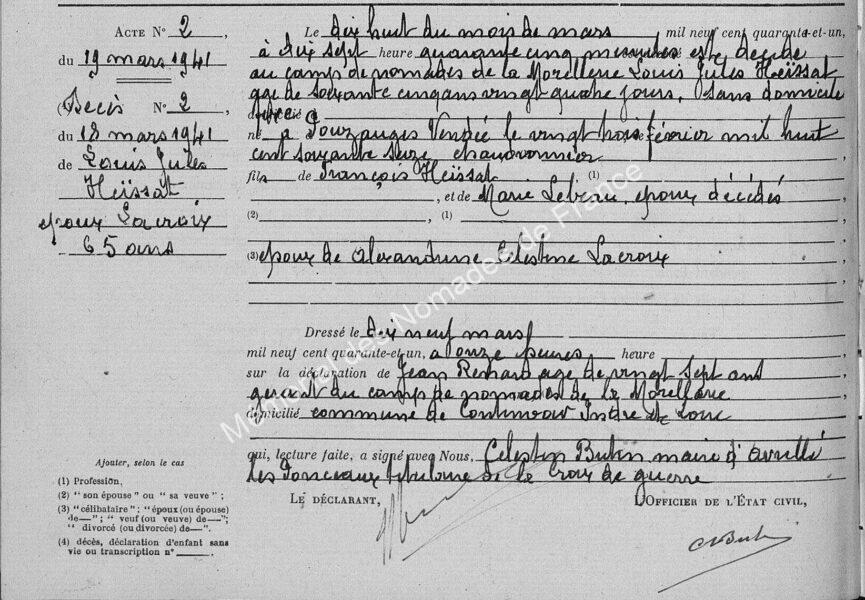 ACTE N° 2,
du 19 mars 1941
(4) Décès N° 2
du 18 mars 1941
de Louis Jules
Heïssat
époux Lacroix
65 ans
Le dix huit du mois de mars mil neuf cent quarante-et-un,
à dix sept heure quarante cinq minutes est décédé
au camp de nomades de la Morellerie Louis Jules Heïssat
age de soixante cinq ans vingt quatre jours, sans domicile
domicilié à fixe
né à Pouzauges Vendée le vingt trois février mil huit
cent soixante seize chaudronnier
fils de François Heïssat (1)
, et de Marie Lebeau, époux décédés
(2) , (1)
(3) époux de Alexandrine Célestine Lacroix
Dressé le dix neuf mars
mil neuf cent quarante-et-un, à onze heures heure
sur la déclaration de Jean Renard age de vingt sept ans
gérant du camp de nomades de la Morellerie
domicilié commune de Continvoir Indre et Loire
qui, lecture faite, a signé avec Nous, Célestin Butin maire d'Avrillé
les Ponceaux titulaire de la croix de guerre
LE DÉCLARANT, L'OFFICIER DE L'ÉTAT CIVIL,
Ajouter, selon le cas
(1) Profession,
(2) "son épouse" ou "sa veuve" ;
(3) "célibataire" ; "époux (ou épouse)
de—" ; "veuf (ou veuve) de—" ;
"divorcé (ou divorcée) de—".
(4) décès, déclaration d'enfant sans
vie ou transcription n° ____.
Mémorial des Nomades de France